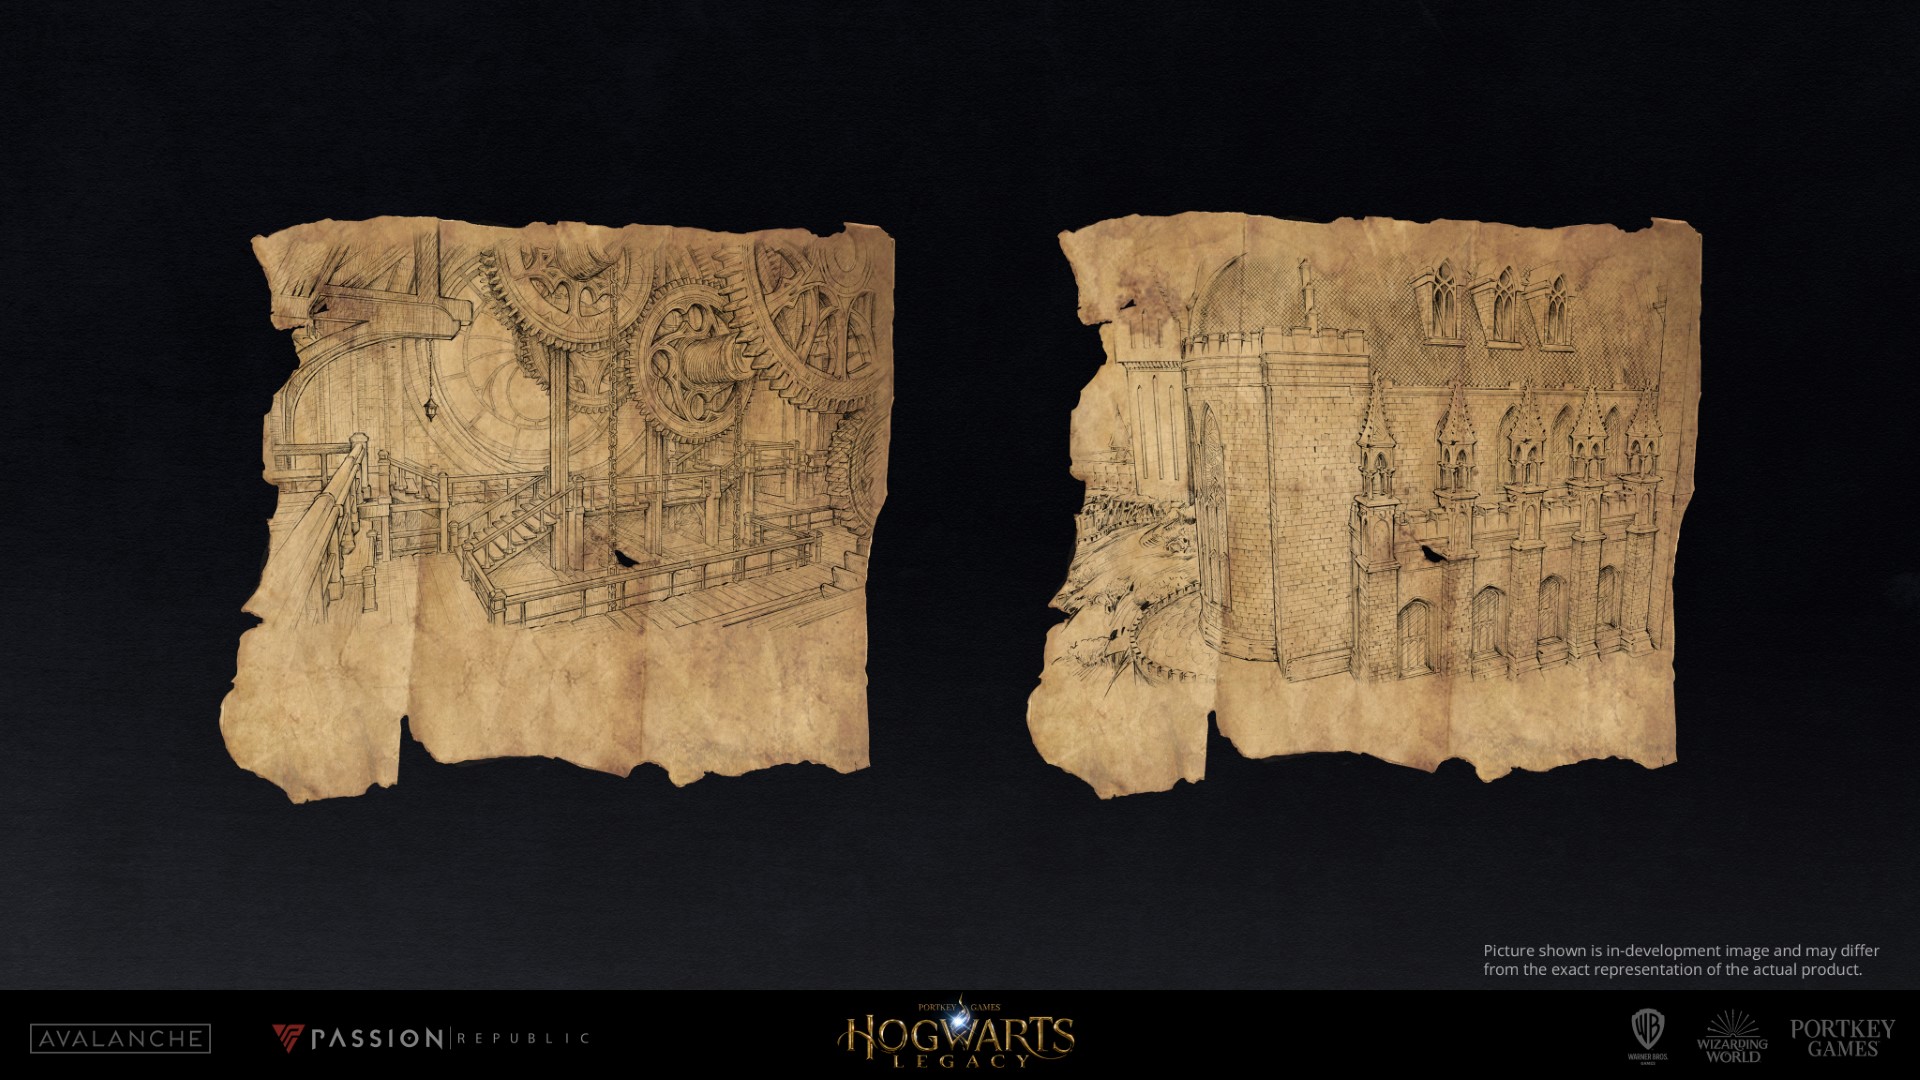 Picture shown is in-development image and may differ
from the exact representation of the actual product.
AVALANCHE
PASSION REPUBLIC
PORTKEY GAMES
HOGWARTS
LEGACY
WB
WARNER BROS.
GAMES
WIZARDING
WORLD
PORTKEY
GAMES